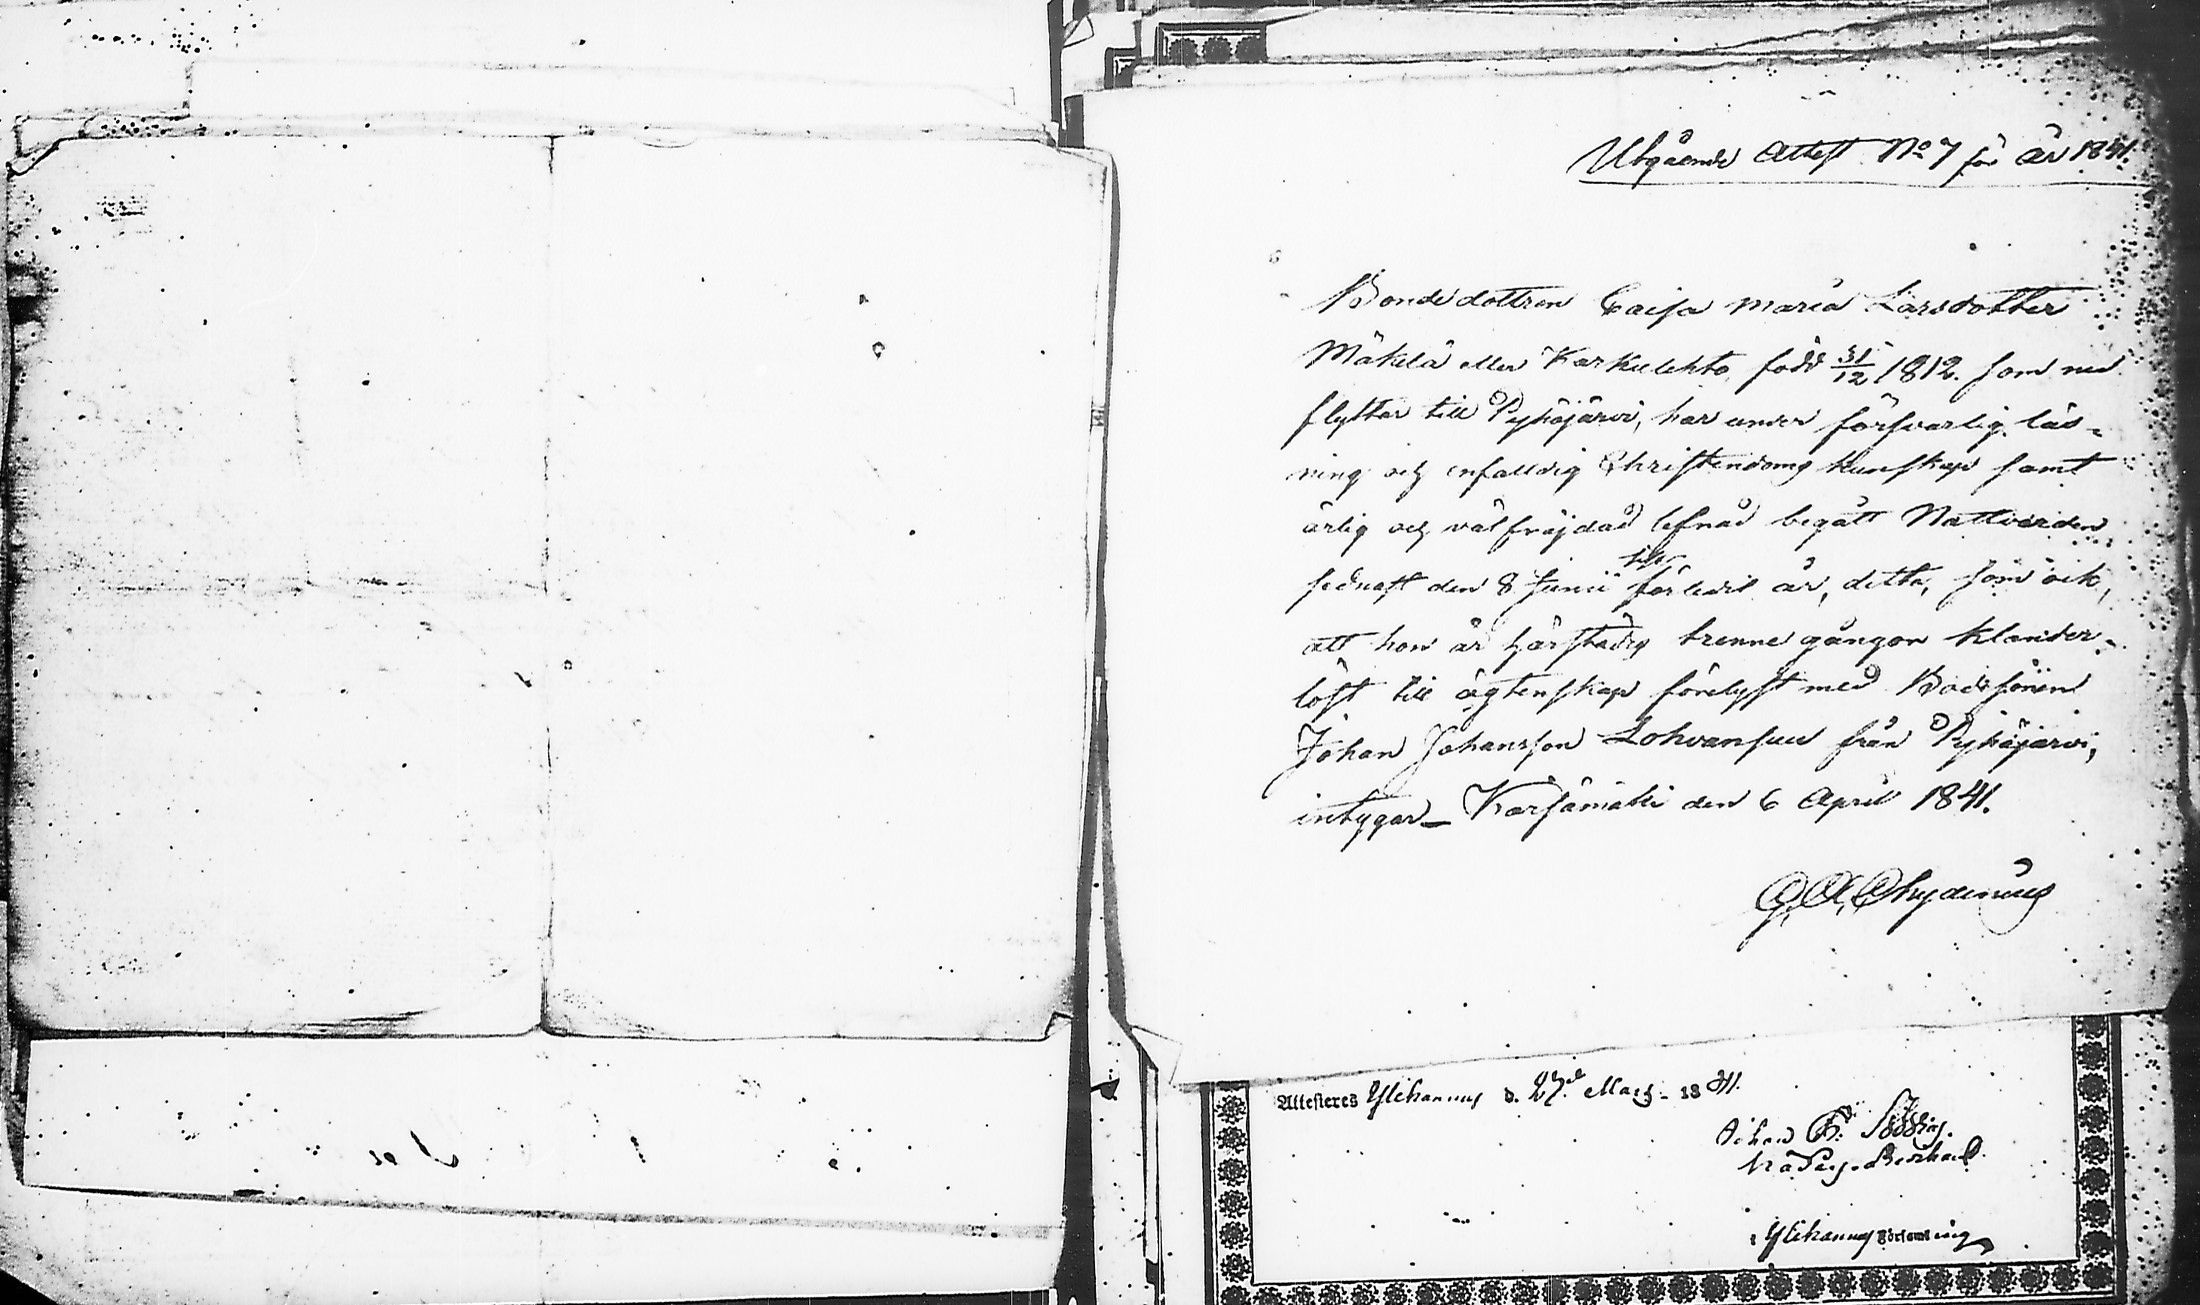 Utgående Attest No 7 för år 1841.
Bondedottren Caisa Maria Larsdotter
Mäkelä eller Karkulehto, född 31/12 1812. som nu
flyttar till Pyhäjärvi, har under försvarlig läs-
ning och enfaldig Christendoms kunskap samt
ärlig och välfräjdad lefnad begått Nattvarden
sednast den 8 Junii förledit år, detta, som ock,
att hon är härstädes trenne gångor klander-
löst till ägtenskap förelyst med Bondesonen
Johan Johansson Lohvansuu från Pyhäjärvi,
intygar_ Kärsämäki den 6 April 1841.
G. A. Chydenius
Attesteres Ylikannus d. 27de Mars 1841.
Johan
i Ylikannus Församling